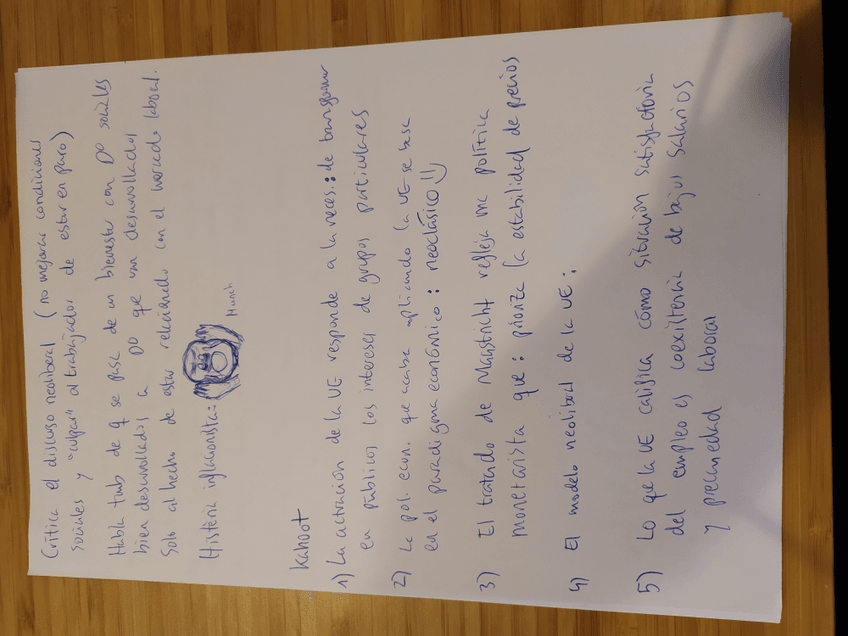 Critica el discurso neoliberal (no mejorar condiciones
sociales y "culpar" al trabajador de estar en paro)
Habla tamb de q se pasa de un bienestar con Dº sociales
bien desarrollados a Dº que van desarrollados
Solo al hecho de estar relacionado con el mercado laboral.
Histeria inflacionista:
Munch
Kahoot
1) La actuación de la UE responde a la veces: de transformar
en públicos los intereses de grupos particulares
2) La pol. econ. que acaba aplicando la UE se basa
en el paradigma económico: neoclásico :)
3) El tratado de Maastricht refleja una política
monetarista que: prioriza la estabilidad de precios
4) El modelo neoliberal de la UE:
5) Lo que la UE califica cómo situación satisfactoria
del empleo es coexistencia de bajos salarios
y precariedad laboral